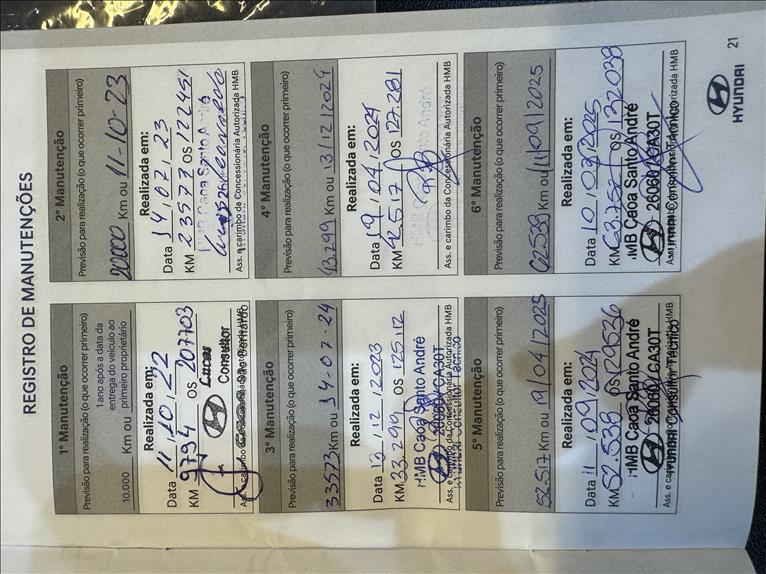 REGISTRO DE MANUTENÇÕES
1ª Manutenção
Previsão para realização (o que ocorrer primeiro)
10.000 Km ou
1 ano após a data da
entrega do veículo ao
primeiro proprietário
Realizada em:
Data 11 / 10 / 22
KM 9794 OS 207703
Lucas
Consultor
São Bernardo
Ass. e carimbo da Concessionária Autorizada HMB
2ª Manutenção
Previsão para realização (o que ocorrer primeiro)
20000 Km ou 11-10-23
Realizada em:
Data 14 / 07 / 23
KM 23573 OS 122451
HMB Caoa Santo André
Ass. e carimbo da Concessionária Autorizada HMB
3ª Manutenção
Previsão para realização (o que ocorrer primeiro)
33573 Km ou 14-07-24
Realizada em:
Data 13 / 12 / 2023
KM 33.299 OS 125.112
HMB Caoa Santo André
Ass. e carimbo da Concessionária Autorizada HMB
4ª Manutenção
Previsão para realização (o que ocorrer primeiro)
43.299 Km ou 13/12/2024
Realizada em:
Data 19 / 04 / 2024
KM 42.517 OS 127.281
HMB Caoa Santo André
Ass. e carimbo da Concessionária Autorizada HMB
5ª Manutenção
Previsão para realização (o que ocorrer primeiro)
52.517 Km ou 19/04/2025
Realizada em:
Data 11 / 09 / 2024
KM 52.538 OS 129536
HMB Caoa Santo André
26060 / CA30T
Consultor Técnico
6ª Manutenção
Previsão para realização (o que ocorrer primeiro)
62538 Km ou 11/09/2025
Realizada em:
Data 10 / 03 / 2025
OS 132038
HMB Caoa Santo André
26060 / CA30T
Consultor Técnico
HYUNDAI
21